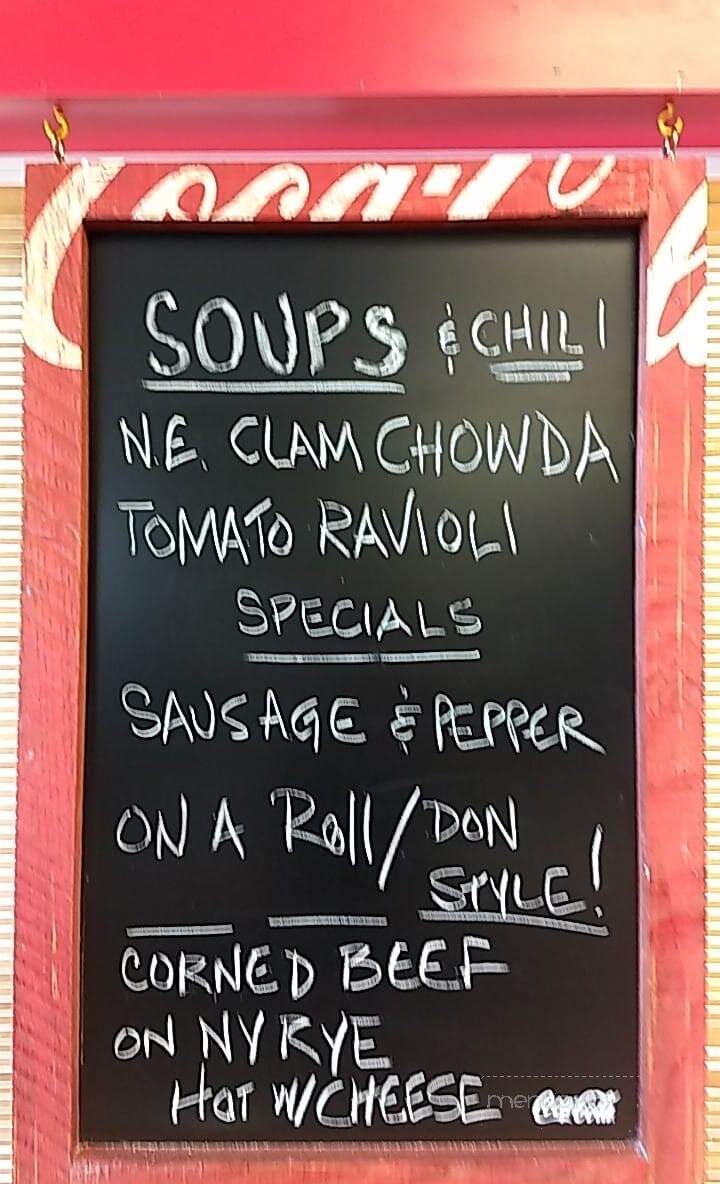 Coca-Cola
SOUPS & CHILI
N.E. CLAM CHOWDA
TOMATO RAVIOLI
SPECIALS
SAUSAGE & PEPPER
ON A Roll/DON
STYLE!
CORNED BEEF
ON NY RYE
HOT W/CHEESE
Coca-Cola